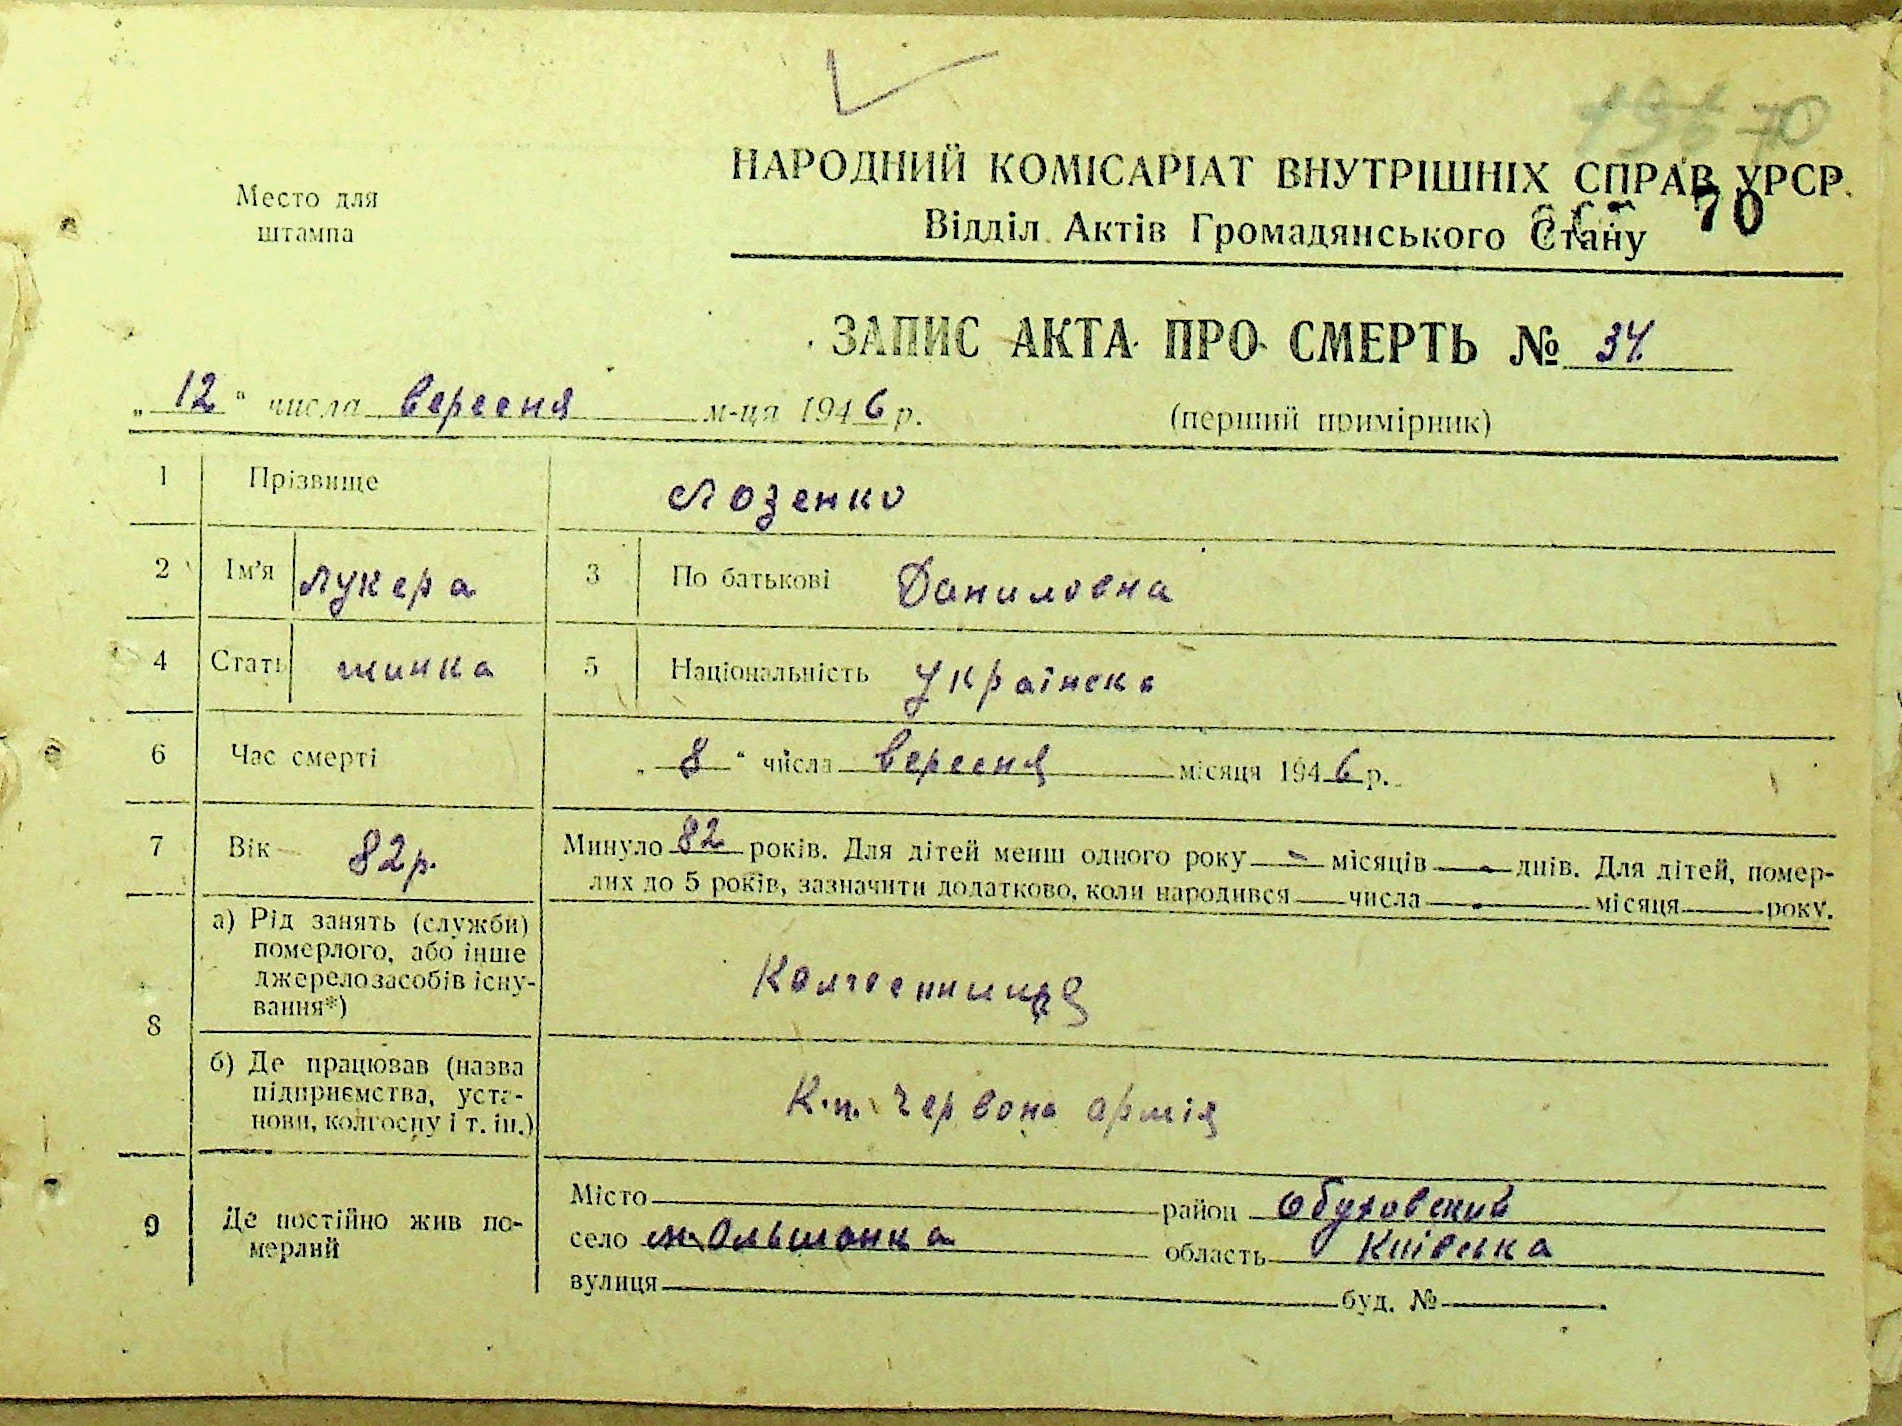 196 70
Место для
штампа
НАРОДНИЙ КОМІСАРІАТ ВНУТРІШНІХ СПРАВ УРСР
Відділ Актів Громадянського Стану
70
ЗАПИС АКТА ПРО СМЕРТЬ № 34
„12" числа вересня м-ця 1946 р.
(перший примірник)
1 Прізвище Лозенко
2 Ім'я Лукера 3 По батькові Даниловна
4 Стать жинка 5 Національність Українска
6 Час смерті „8" числа вересня місяця 1946 р.
7 Вік 82 р. Минуло 82 років. Для дітей менш одного року - місяців - днів. Для дітей, помер-
лих до 5 років, зазначити додатково, коли народився числа місяця року.
8 а) Рід занять (служби)
померлого, або інше
джерело засобів існу-
вання*)
Колгоспниця
б) Де працював (назва
підприємства, уста-
нови, колгоспу і т. ін.)
К-п. Червона армія
9 Де постійно жив по-
мерлий
Місто район Обуховский
село м. Ольшанка область Київська
вулиця буд. №